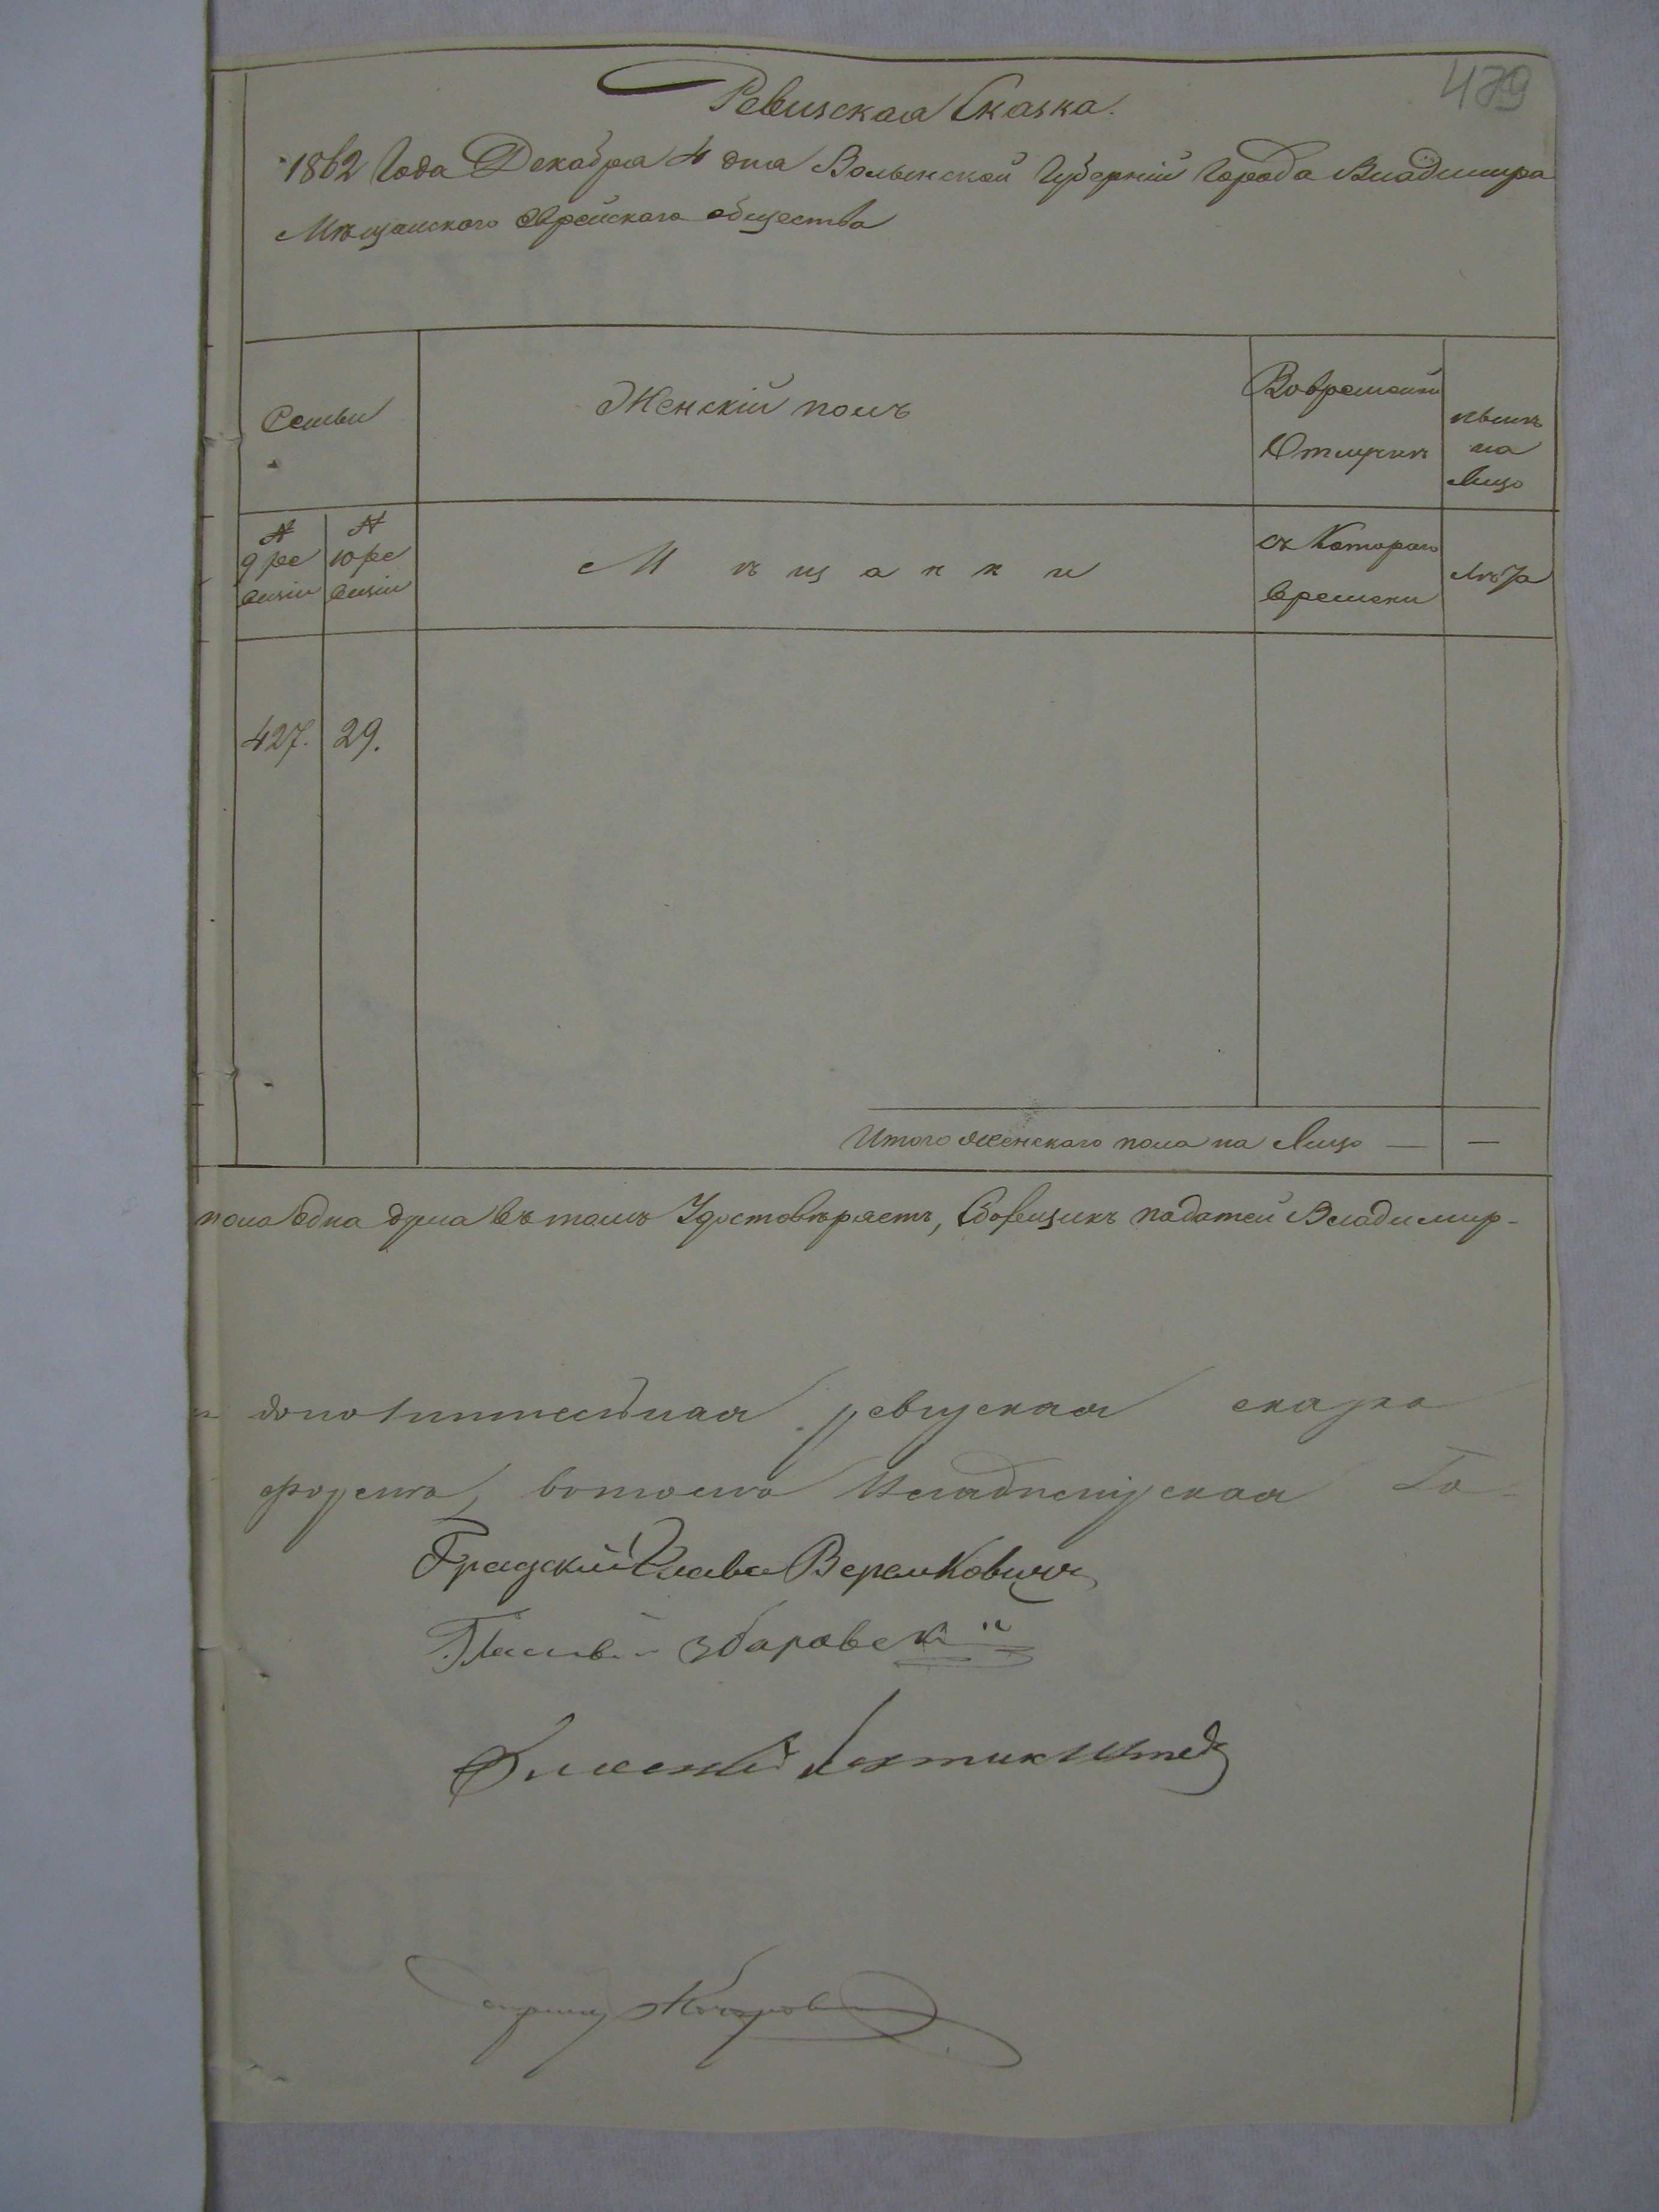 479
Ревизская Сказка.
1862 Года Декабря 4 дня Волынской Губерніи Города Владимира
Мѣщанского Еврейского общества
Семьи
Женскій полъ
Вовременной
Отлучкѣ
нынѣ
на
Лицо
№
9 ре
визіи
№
10 ре
визіи
Мѣщанки
съ Котораго
времени
Лѣта
427.
29.
Итого женскаго пола на Лицо — —
пола Одна душа въ томъ Удостовѣряетъ, Сборщикъ податей Владимир-
дополнительная ревизская сказка
Владимірская
Градский Глава
Збаровскій